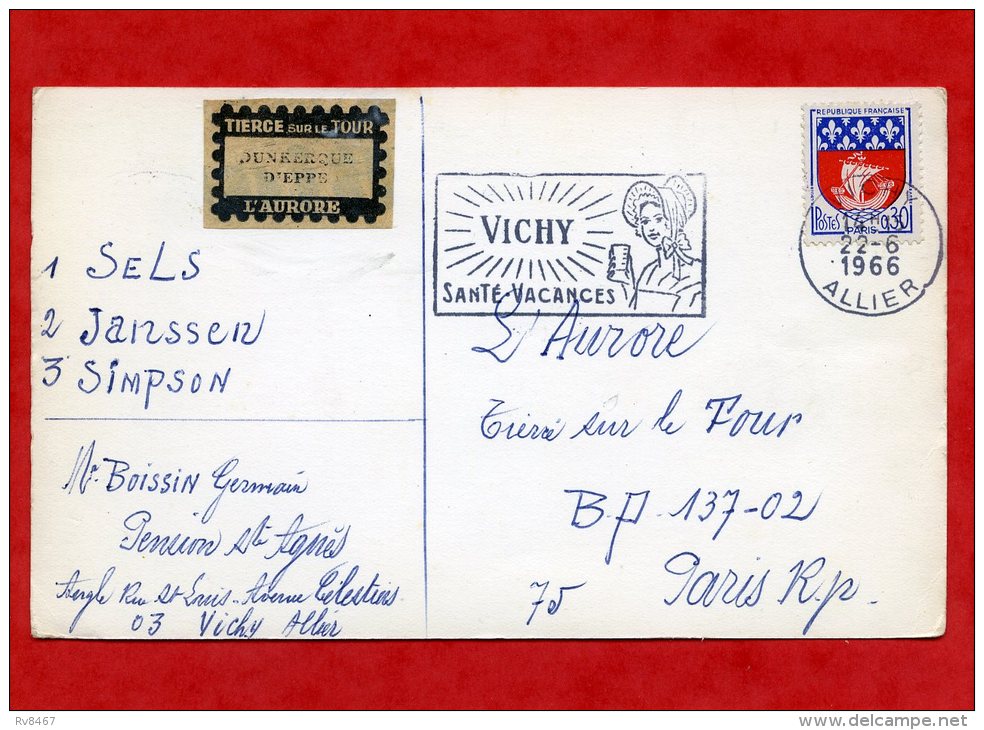 TIERCE SUR LE TOUR
DUNKERQUE
DIEPPE
L'AURORE
1 SELS
2 Janssen
3 SIMPSON
Mr BOISSIN Germain
Pension Ste Agnès
Angle Rue St Louis - Avenue Célestins
03 Vichy Allier
VICHY
SANTÉ-VACANCES
REPUBLIQUE FRANÇAISE
POSTES 0,30
PARIS
22-6
1966
ALLIER
L'Aurore
Tiercé sur le Tour
B.P. 137-02
75 Paris R.p.
Rv8467
delcampe.net